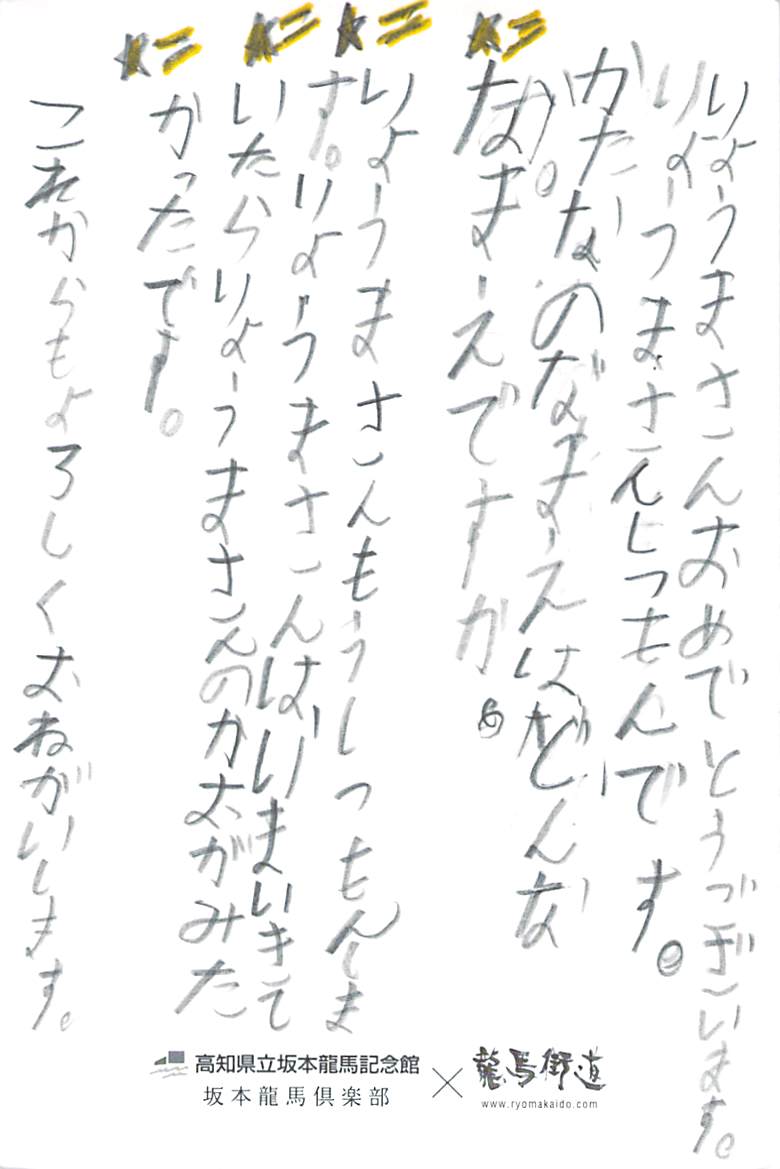 りようまさんおめでとうございます。
りようまさんしつもんです。
かたなのなまえはどんな
なまえですか。
りようまさんもうしつもんしま
す。りようまさんはいまいきて
いたらりようまさんのかおがみた
かったです。
これからもよろしくおねがいします。
高知県立坂本龍馬記念館
坂本龍馬倶楽部
×
龍馬街道
www.ryomakaido.com